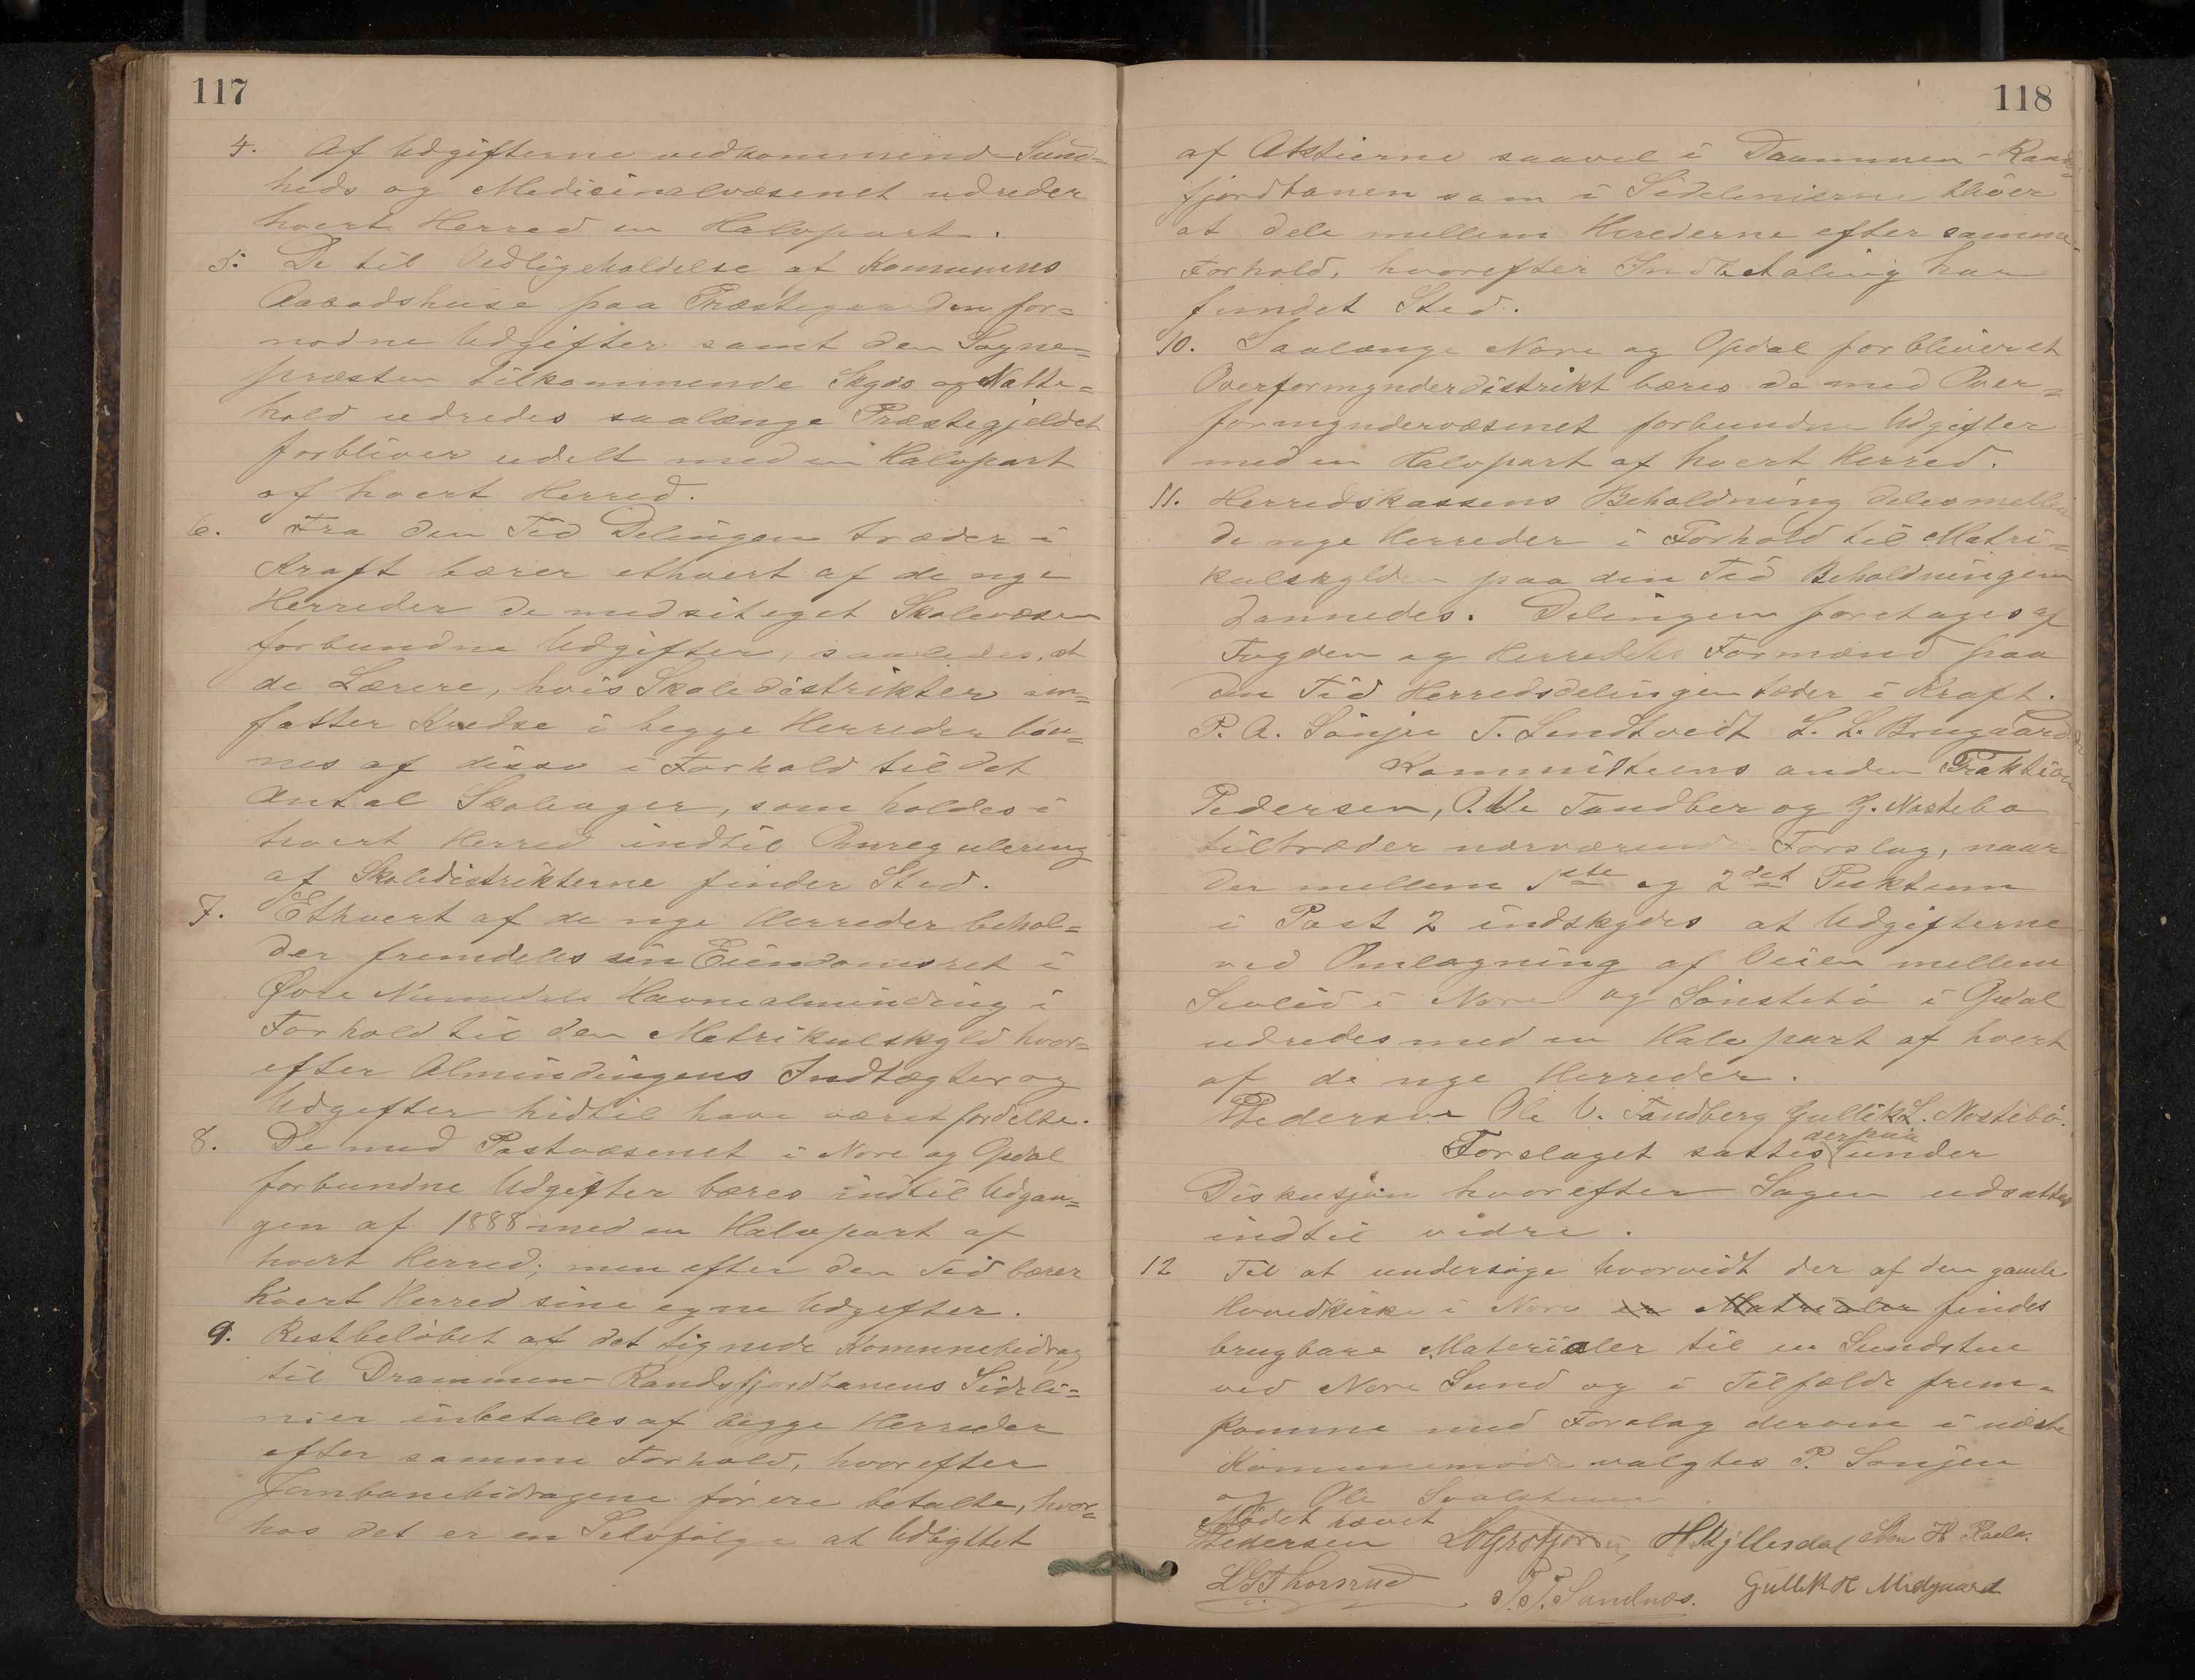 117
4. Af Udgifterne vedkommende Sund=
heds og Medicinalvæsenet udreder
hvert Herred en Halvpart.
5. De til Vedligeholdelse af Komunens
Aabodshuse paa Præstegaarden for=
nødne Udgifter samt den Sogne=
præsten tilkommende Skyds og Natte=
hold udredes saalænge Præstegjeldet
forbliver udelt med en Halvpart
af hvert Herred.
6. Fra den Tid Delingen træder i
Kraft bærer ethvert af de nye
Herreder de med sit eget Skolevæsen
forbundne Udgifter, saaledes, at
de Lærere, hvis Skoledistrikter om=
fatter Kredse i begge Herreder løn=
nes af disse i Forhold til det
Antal Skoleuger, som holdes i
hvert Herred indtil Omregulering
af Skoledistrikterne finder Sted.
7. Ethvert af de nye Herreder behol=
der fremdeles sin Eiendomsret i
Øvre Numedals Havnealminding i
Forhold til den Matrikulskyld hvor=
efter Almindingens Indtægter og
Udgifter hidtil have været fordelte.
8. De med Postvæsenet i Nore og Opdal
forbundne Udgifter bæres indtil Udgan=
gen af 1888 med en Halvpart af
hvert Herred; men efter den Tid bærer
hvert Herred sine egne Udgifter.
9. Restbeløbet af det tignede Komunebidrag
til Drammen-Randsfjordbanens Sideli=
nier inbetales af begge Herreder
efter samme Forhold, hvorefter
Jernbanebidragene før ere betalte, hvor=
hos det er en Selvfølge at Udbyttet
118
af Aktierne saavel i Drammen-Rands=
fjordbanen som i Sidelinierne bliver
at dele mellem Herederne efter samme
Forhold, hvorefter Indbetaling har
fundet Sted.
10. Saalænge Nore og Opdal forbliver et
Overformynderdistrikt bæres de med Over=
formyndervæsenet forbundne Udgifter
med en Halvpart af hvert Herred.
11. Herredskassens Beholdning deles mellem
de nye Herreder i Forhold til Matri=
kulskylden paa den Tid Beholdningen
dannedes. Delingen foretages af
Fogden og Herredets Formænd paa
den Tid Herredsdelingen tæder i Kraft.
P. A. Sønjer T. Lendtvedt L. L. Brugaard
Kommitteens anden Fraktion
Pedersen, O. V. Tandber og G. Nøstebø
tiltræder nærværende Forslag, naar
der mellem 1ste og 2det Puktum
i Post 2 indskydes at Udgifterne
ved Omlægning af Veien mellem
Sevlid i Nore og Sønstebø i Opdal
udredes med en Halvpart af hvert
af de nye Herreder.
Pedersen Ole V. Tandberg Gullik L. Nøstebø.
derpaa
Forslaget sattes under
Diskusjon hvorefter Sagen udsattes
indtil vidre.
12 Til at undersøge hvorvidt der af den gamle
Hovedkirke i Nore er Matrialer findes
brugbare Materialer til en Sundstue
ved Nore Sund og i Tilfælde frem=
komme med Forslag derom i næste
Komunemøde valgtes P. Sønjer
og Ole
Mødet hævet
Pedersen H Kjillesdal
L G Thorsrud T. T. Sandnæs. Gullik H Midgaard